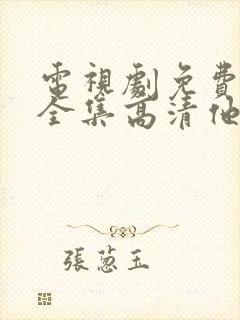 電視劇免費
全集高清他
張蔥玉